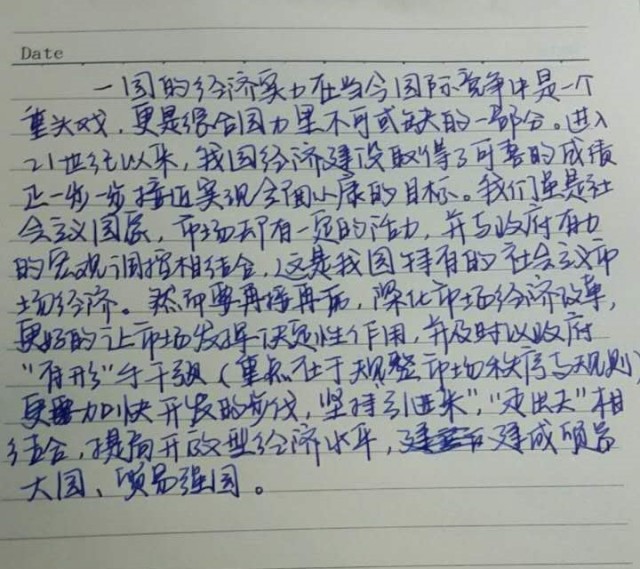 Date
一国的经济实力在当今国际竞争中是一个
重头戏，更是综合国力里不可或缺的一部分。进入
21世纪以来，我国经济建设取得了可喜的成绩
正一步一步接近实现全面小康的目标。我们虽是社
会主义国家，市场却有一定的活力，并与政府有力
的宏观调控相结合，这是我国特有的社会主义市
场经济。然而要再接再厉，深化市场经济改革，
更好的让市场发挥决定性作用，并及时以政府
“有形”手干预（重点在于规整市场秩序与规则）
更加快开放的步伐，坚持“引进来”，“走出去”相
结合，提高开放型经济水平，建成贸易
大国、贸易强国。